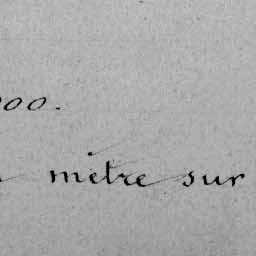 000.
mètre sur